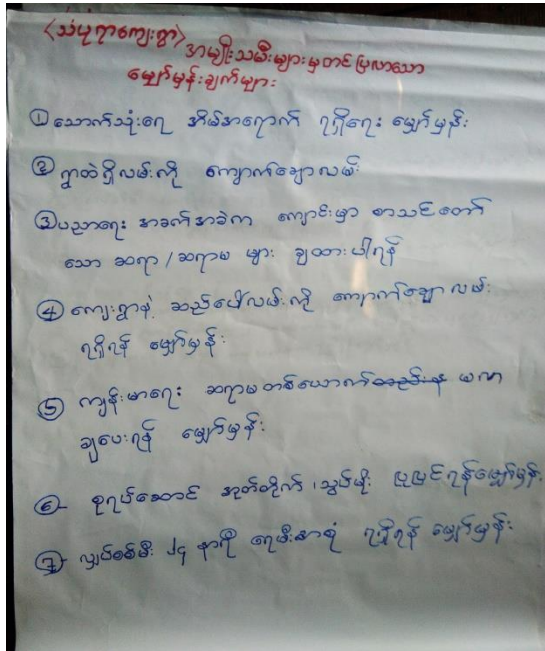 <သံပုရာကျေးရွာ>
အမျိုးသမီးများမှတင်ပြလာသော
မျှော်မှန်းချက်များ
① သောက်သုံးရေ အိမ်အရောက် ရရှိရေး မျှော်မှန်း
② ရွာထဲရှိလမ်းကို ကျောက်ချောလမ်း
③ ပညာရေး အခက်အခဲက ကျောင်းမှာ စာသင်တော်
သော ဆရာ/ဆရာမ များ ချထားပါရန်
④ ကျေးရွာနဲ့ ဆည်ပေါ်လမ်းကို ကျောက်ချောလမ်း
ရရှိရန် မျှော်မှန်း
⑤ ကျန်းမာရေး ဆရာမတစ်ယောက်
ချပေးရန် မျှော်မှန်း
⑥ စုရပ်ဆောင် အုတ်တိုက်၊ သွပ်မိုး ပြုပြင်ရန်မျှော်မှန်း
⑦ လျှပ်စစ်မီး ၂၄ နာရီ ရရှိရန် မျှော်မှန်း